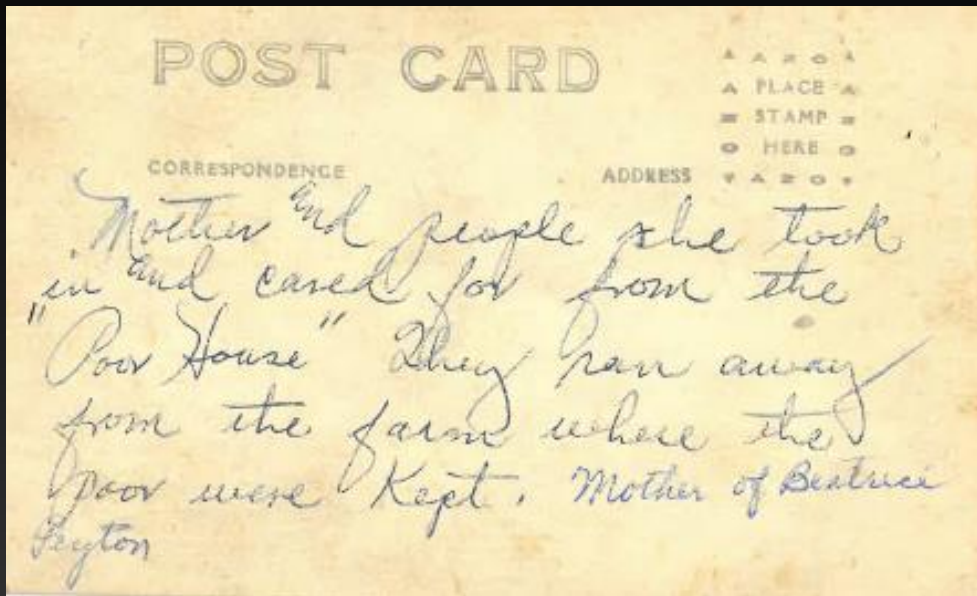 POST CARD
▲ A Z O ▲
▲ PLACE ▲
STAMP
HERE
▼ A Z O ▼
CORRESPONDENCE
ADDRESS
Mother and people she took
in and cared for from the
"Poor House" They ran away
from the farm where the
poor were Kept. Mother of Beatrice
Peyton